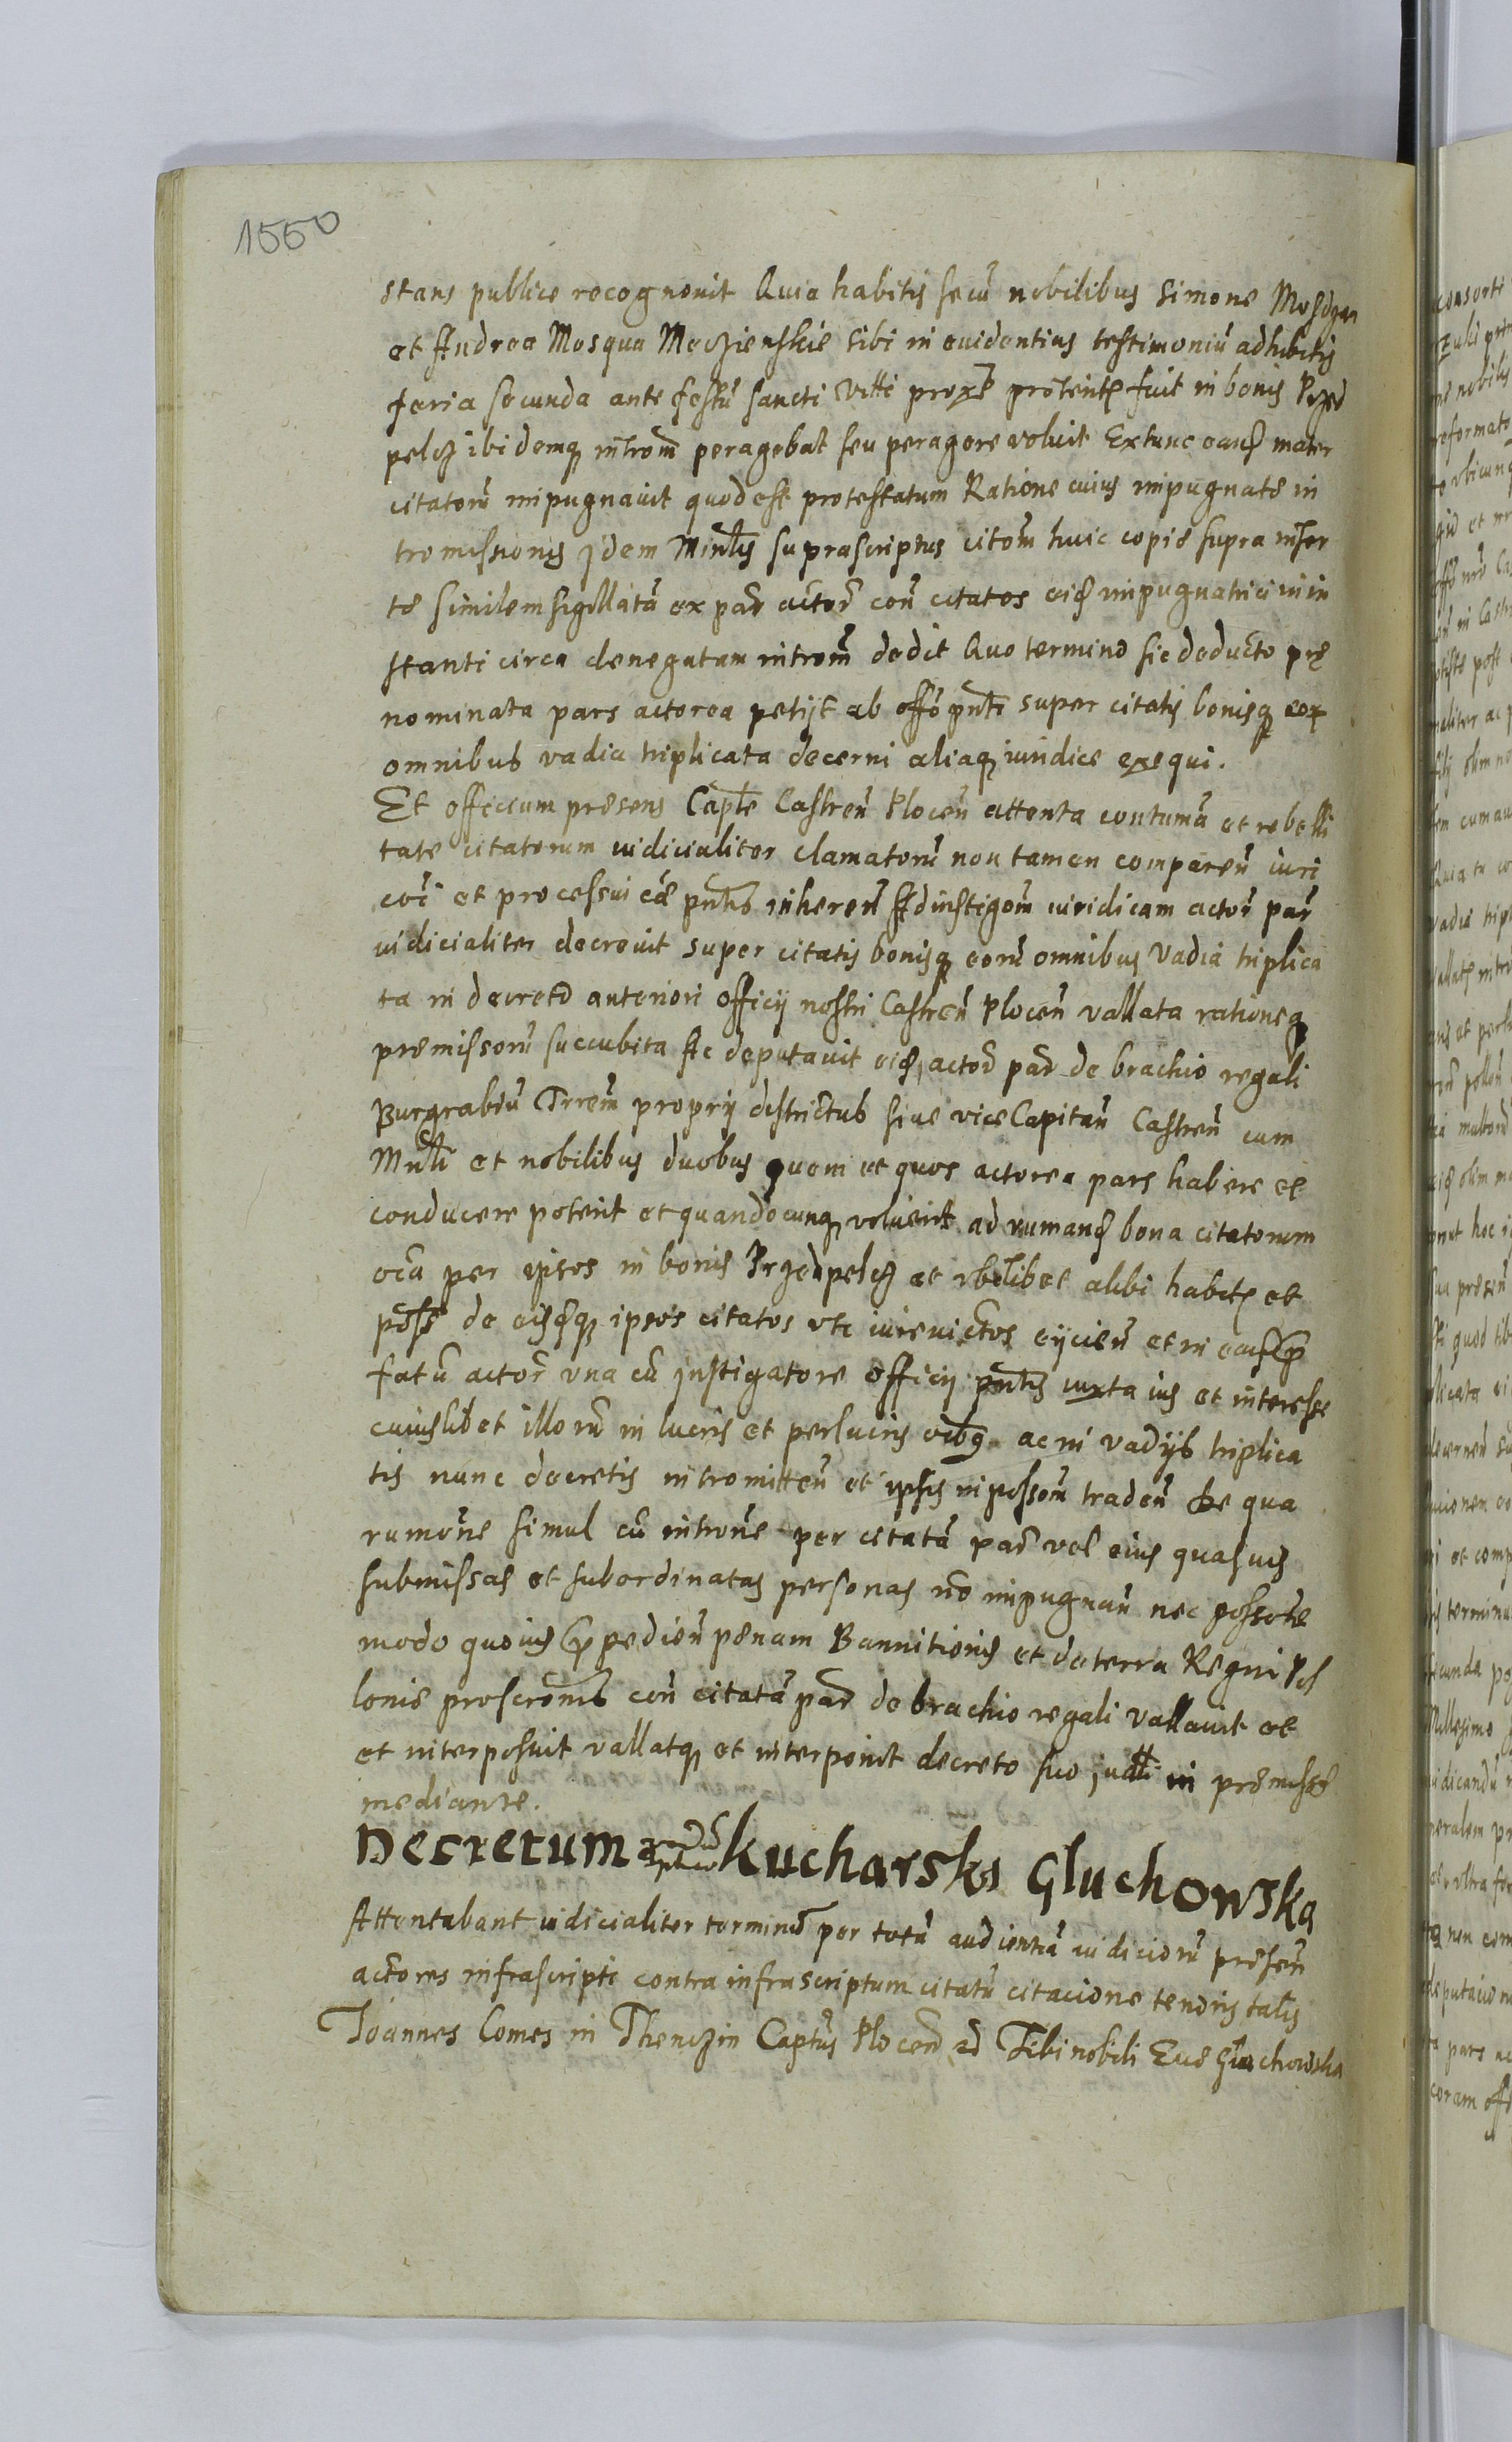 1550
stans publice recognouit Quia habitis secũ nobilibus Simone
et Andrea Mosqua Moczienskie sibi in euidentius testimoniũ adhibitis
feria secunda ante festũ sancti Viti proxe preteriti fuit in bonis Przed
pelcz ibidemq introm peragebat seu peragere voluit Extunc eand mater
citatorũ impugnauit quod est protestatum Ratione cuius impugnate in
tromissionis Idem Minlis suprascriptus citom huic copie supra inser
te similem sigillatã ex par actor con citatos eid impugnatrici in in
stanti circa denegatam introm dedit Quo termino sic deducto prę
nominata pars actorea petijt ab offo pnti super citatis bonisq eor
omnibus vadia triplicata decerni aliaq iuridice exequi.
Et officium presens Caple Castren Plocen attenta contumã et rebelli
tate citatorum iudicialiter clamatorũ non tamen comparen iuri
coi et processui cãe pntis inheren Ad instigom iuridicam actor par
iudicialiter decreuit super citatis bonisq eorũ omnibus Vadia triplica
ta in decreto anteriori officij nostri Castren Plocen vallata rationeq
premissorũ succubita Ac deputauit eid actor par de brachio regali
Burgrabiũ Trrem proprij districtus siue vice Capitan Castren cum
Mnli et nobilibus duobus quem et quos actorea pars habere et
conducere poterit et quandocunq voluerit ad rumand bona citatorum
oia per ipsos in bonis Przedpelcz et vbilibet alibi habita et
posse de eisdq ipsos citatos vti iure victos eijcien et in eand p
fatũ actor vna cũ Instigatore officij pntis iuxta ius et interesse
cuiuslibet illorũ in lucris et perlucris oibq ac in vadijs triplica
tis nunc decretis intromitten et ipsis in possom traden De qua
rumõne simul cũ introne per citatã par vel eius quasuis
submissas et subordinatas personas nõ impugnan nec possone
modo quouis p pedien penam Bannitionis et de terra Regni Po
lonie proscronis con citatã par de brachio regali vallauit et
et interposuit vallatq et interponit decreto suo Iudli in premisse
mediante.
Decretum Kucharski Gluchowska
Attentabant iudicialiter terminũ per totã audientiã iudiciorũ presen
actores infrascripti contra infrascriptum citatũ citacione tenoris talis
Ioannes Comes in Thenczin Captus Plocen et Tibi nobili Eue Gluchowska